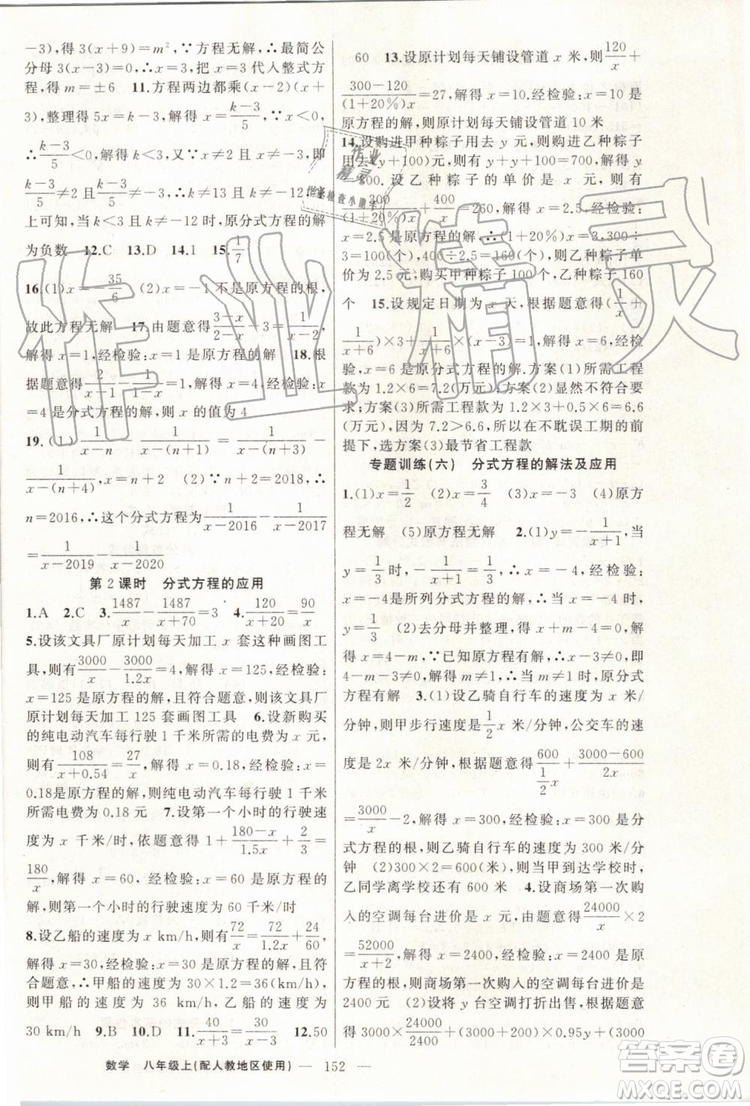 -3),得 3(x+9)=mx.∵方程无解,∴最简公
分母 3(x-3)=0,∴x=3,把 x=3 代人整式方
程,得 m=±6  11.方程两边都乘(x+2)(x+
3),整理得 x=(k-3)/5.∵x<0,∴(k-3)/5<0,
∴k-3<0,解得 k<3.又∵x≠-2 且 x≠-3,∴
(k-3)/5≠-2 且 (k-3)/5≠-3,∴k≠-7 且 k≠-12.由
上可知,当 k<3 且 k≠-12 时,原分式方程的解
为负数  12.C  13.D  14.1  15.1/7
16.(1)x=35/6  (2)x=-1 不是原方程的根,
故此方程无解  17.由题意得 (3-x)/(2-x)-1/(x-2)=3,
解得 x=1,经检验:x=1 是原方程的解  18.
根据题意得 2/(x-1)-(x-1)/(x-1)=-1/3,解得 x=4,经检验:x
=4 是分式方程的解,则 x 的值为 4
19.(1)∵1/(x-n)-1/(x-(n+1))=1/(x-(n+3))-
1/(x-(n+4)),∴x=n+2  (2)∵n+2=2018,∴
n=2016,∴这个分式方程为1/(x-2016)-1/(x-2017)
=1/(x-2019)-1/(x-2020)
第 2 课时  分式方程的应用
1.A  2.C  3.1487/x-1487/(x+70)=3  4.120/(x+20)=90/x
5.设该文具厂原计划每天加工 x 套这种画图工
具,则有3000/x-3000/1.2x=4,解得 x=125,经检验:
x=125 是原方程的解,且符合题意,则该文具厂
原计划每天加工 125 套画图工具  6.设新购买
的纯电动汽车每行驶 1 千米所需的电费为 x 元,
则有108/(x+0.54)=27/x,解得 x=0.18,经检验:x
=0.18是原方程的解,则纯电动汽车每行驶 1 千
米所需的电费为 0.18 元  7.设第一个小时的行驶
速度为 x 千米/时,依题意得 1+(180-x)/1.5x+2/3=
180/x,解得 x=60,经检验:x=60 是方程的解,
则第一个小时的行驶速度为 60 千米/时
8.设乙船的速度为 x km/h,则有72/x=72/1.2x+24/60,
解得 x=30,经检验:x=30 是原方程的解且
符合题意,则甲船的速度是 36 km/h,乙船的速度为
30 km/h  9.B  10.D  11.A  12.50
60  13.设原计划每天铺设管道 x 米,则120/x+
(300-120)/((1+20%)x)=30,解得 x=10,经检验:x=10 是
原方程的解,则原计划每天铺设管道 10 米
14.设购进甲种粽子用去 y 元,则购进乙种粽子
用去(y+100)元,则有 y+y+100=700,解得
y=300.设乙种粽子的单价是 x 元,则有
300/((1+20%)x)+400/x=260,解得 x=2.5,经检验:
x=2.5 是原方程的解,(1+20%)x=3,300÷
3=100(个),400÷2.5=160(个),
则购买甲种粽子 100 个,购买乙种粽子 160
个  15.设规定日期为 x 天,根据题意得(1/x+
1/(x+6))×3+1/(x+6)×(x-3)=1,解得 x=6,经检
验:x=6 是原方程的解.方案(1)所需工程
款为 1.2×6=7.2(万元);方案(2)不符合要
求;方案(3)所需工程款为 1.2×3+0.5×6=6.6
(万元),因为 7.2>6.6,所以在不耽误工期的前
提下,选方案(3)最节省工程款
专题训练(六)  分式方程的解法及应用
1.(1)x=1/2  (2)x=3/4  (3)x=-3  (4)原方
程无解  (5)原方程无解  2.(1)y=-1/(x+1),当
y=1/3时,1/3=-1/(x+1),解得 x=-4,经检验:x
=-4 是所列分式方程的解,∴x=-4 时,y=
1/3  (2)去分母并整理,得 x+m-4=0,解得
x=4-m.∵已知原方程有解,∴x≠3,
∴4-m-3≠0,解得 m≠1,则当 m≠1 时,原分式
方程有解  3.(1)设乙骑自行车的速度为 x 米/
分钟,则甲步行速度是1/2x 米/分钟,公交车的速
度是2x 米/分钟,根据题意得600/(1/2x)+(3000-600)/2x
=3000/x-2,解得 x=300,经检验:x=300 是分
式方程的根,则乙骑自行车的速度为 300 米/分
钟  (2)300×2=600(米),则当甲到达学校时,
乙同学离学校还有 600 米  4.设商场第一次购
入的空调每台进价是 x 元,根据题意得24000/x×2
=52000/(x+2),解得 x=2400,经检验:x=2400 是原
方程的根,则商场第一次购入的空调每台进价是
2400 元  (2)设将 y 台空调打折出售,根据题意
得3000×24000/2400+(3000+200)×0.95y+(3000
数学  八年级上(配人教地区使用)  — 152 —
作业精灵